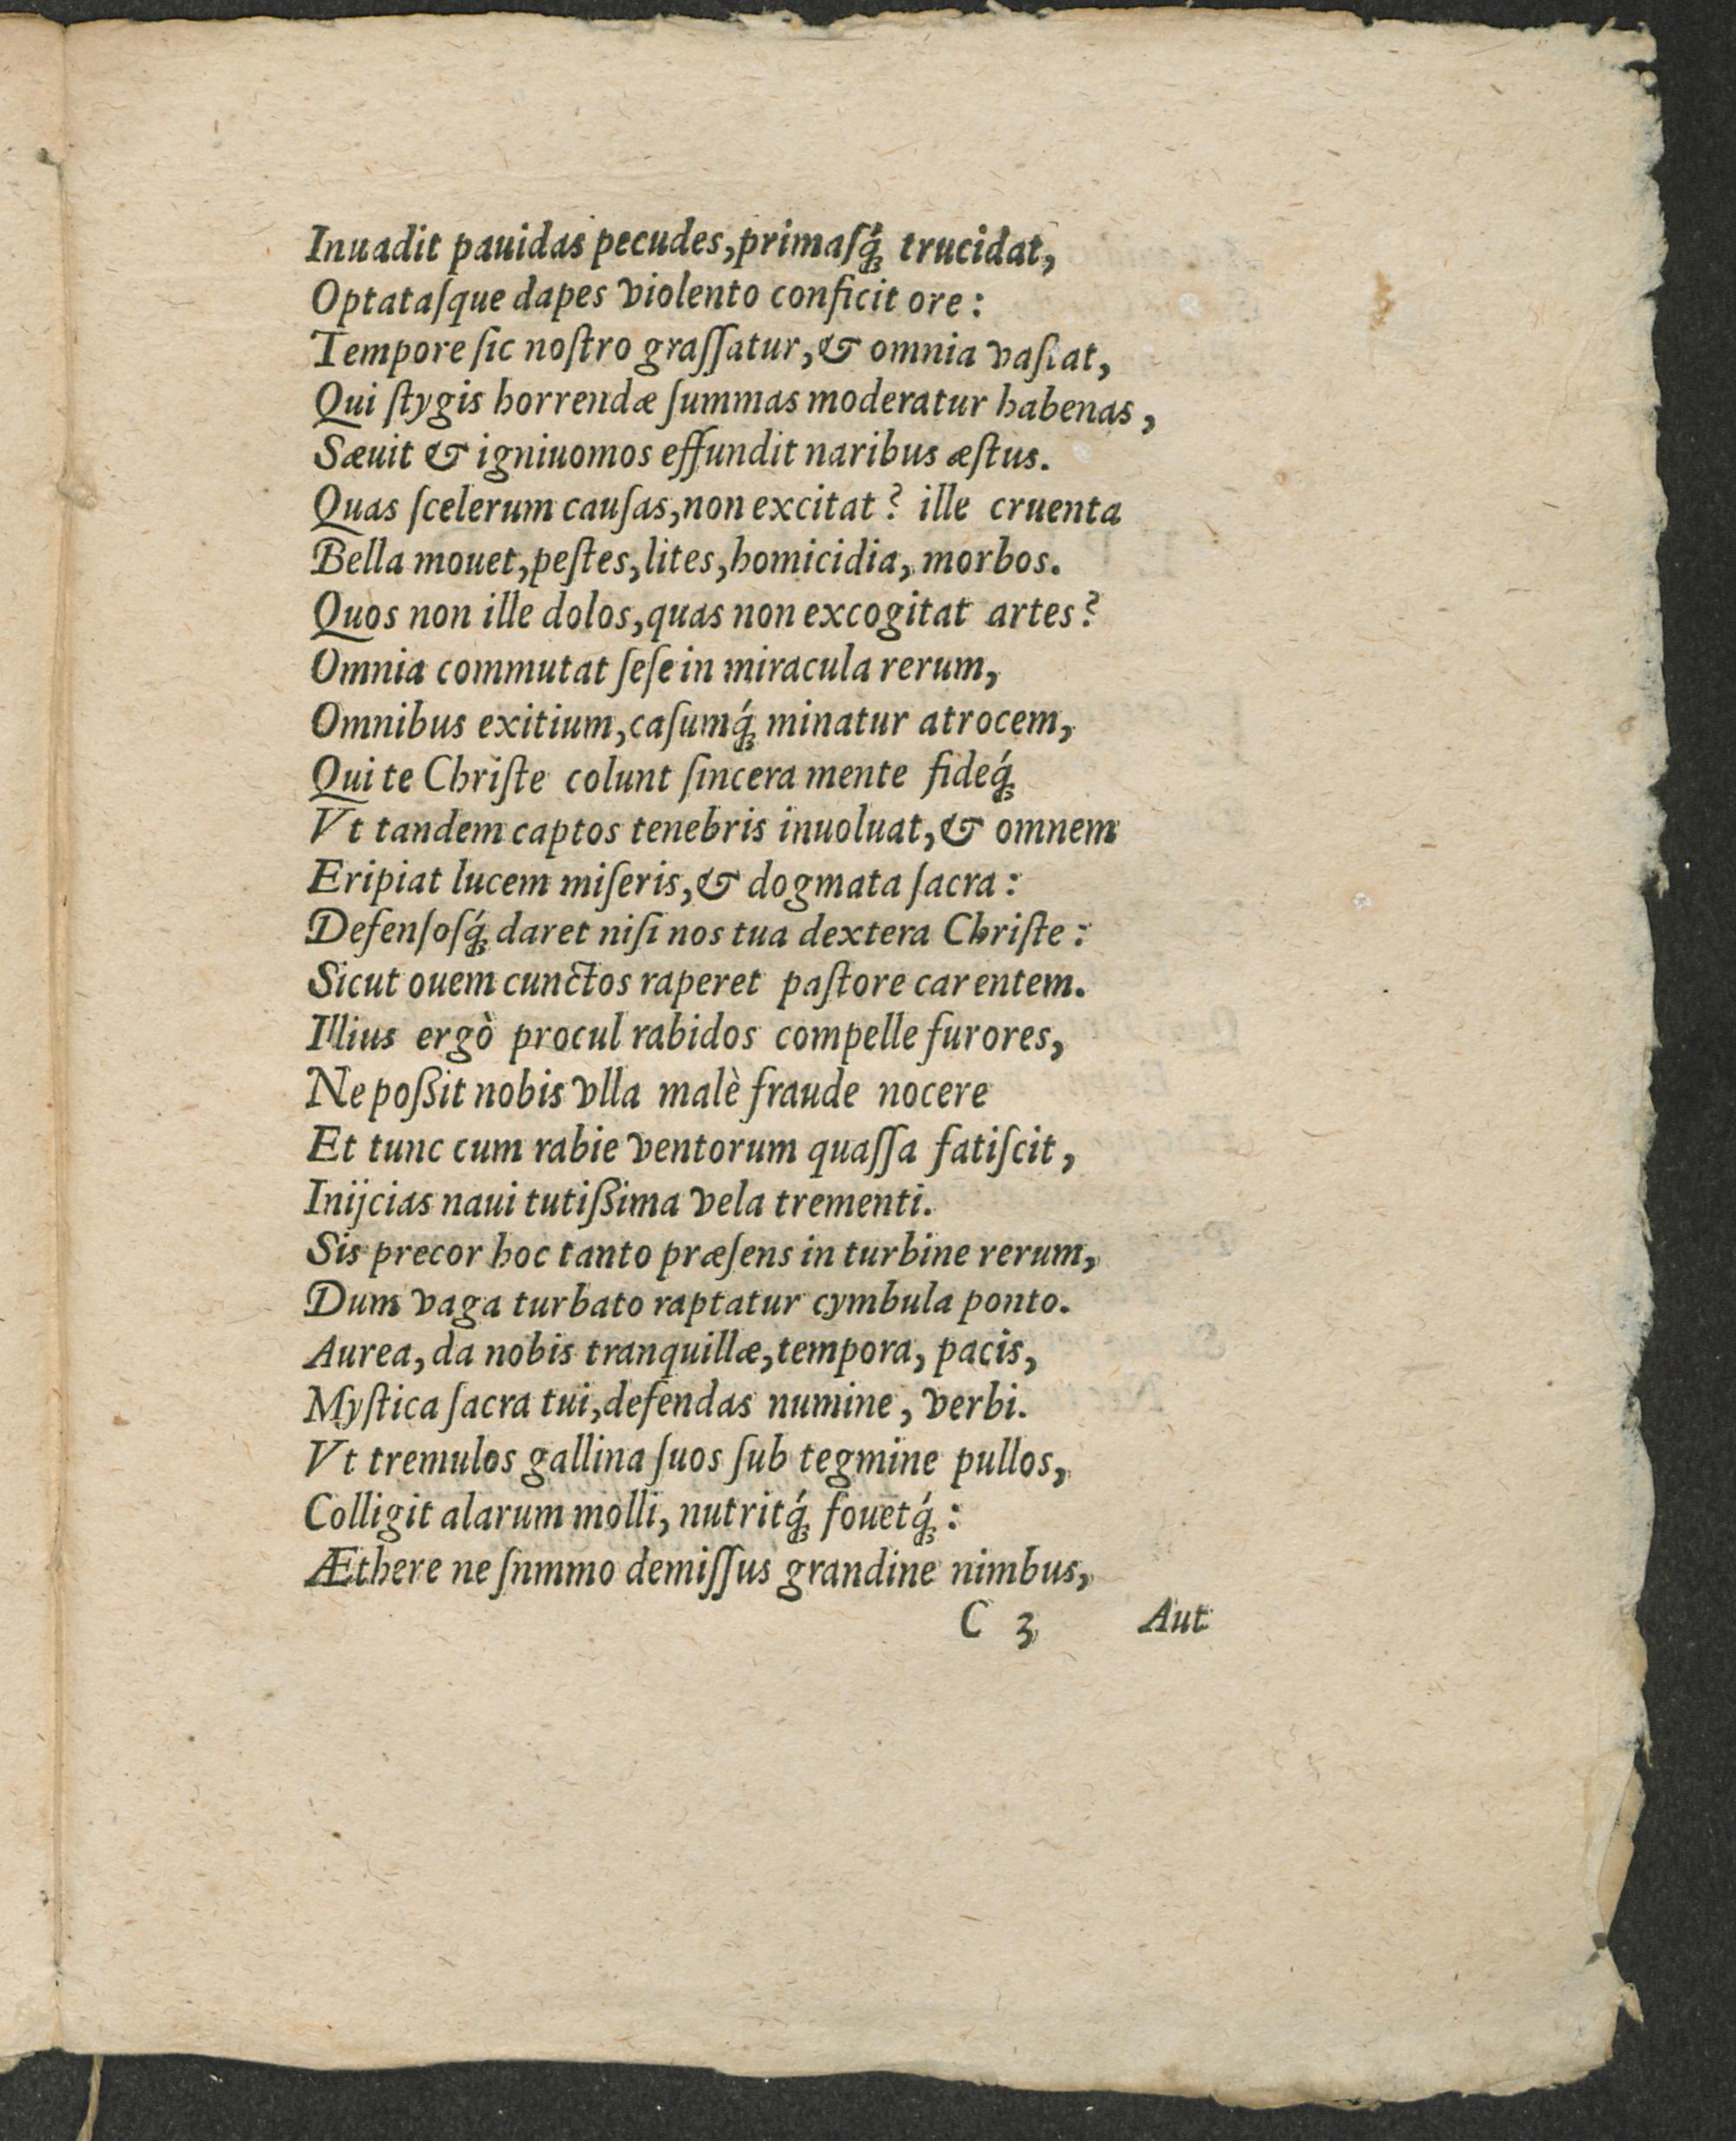 Inuadit pauidas pecudes, primaſq́; trucidat,
Optataſque dapes violento conficit ore:
Tempore ſic noſtro graſſatur, & omnia vaſtat,
Qui ſtygis horrendæ ſummas moderatur habenas,
Sæuit & igniuomos effundit naribus æſtus.
Quas ſcelerum cauſas, non excitat? ille cruenta
Bella mouet, peſtes, lites, homicidia, morbos.
Quos non ille dolos, quas non excogitat artes?
Omnia commutat ſeſe in miracula rerum,
Omnibus exitium, caſumq́; minatur atrocem,
Qui te Chriſte colunt ſincera mente fideq́;
Vt tandem captos tenebris inuoluat, & omnem
Eripiat lucem miſeris, & dogmata ſacra:
Defenſoſq́; daret niſi nos tua dextera Chriſte:
Sicut ouem cunctos raperet paſtore carentem.
Illius ergò procul rabidos compelle furores,
Ne poßit nobis vlla malè fraude nocere
Et tunc cum rabie ventorum quaſſa fatiſcit,
Inijcias naui tutißima vela trementi.
Sis precor hoc tanto præſens in turbine rerum,
Dum vaga turbato raptatur cymbula ponto.
Aurea, da nobis tranquillæ, tempora, pacis,
Myſtica ſacra tui, defendas numine, verbi.
Vt tremulos gallina ſuos ſub tegmine pullos,
Colligit alarum molli, nutritq́; fouetq́;:
Æthere ne ſnmmo demiſſus grandine nimbus,
C 3 Aut